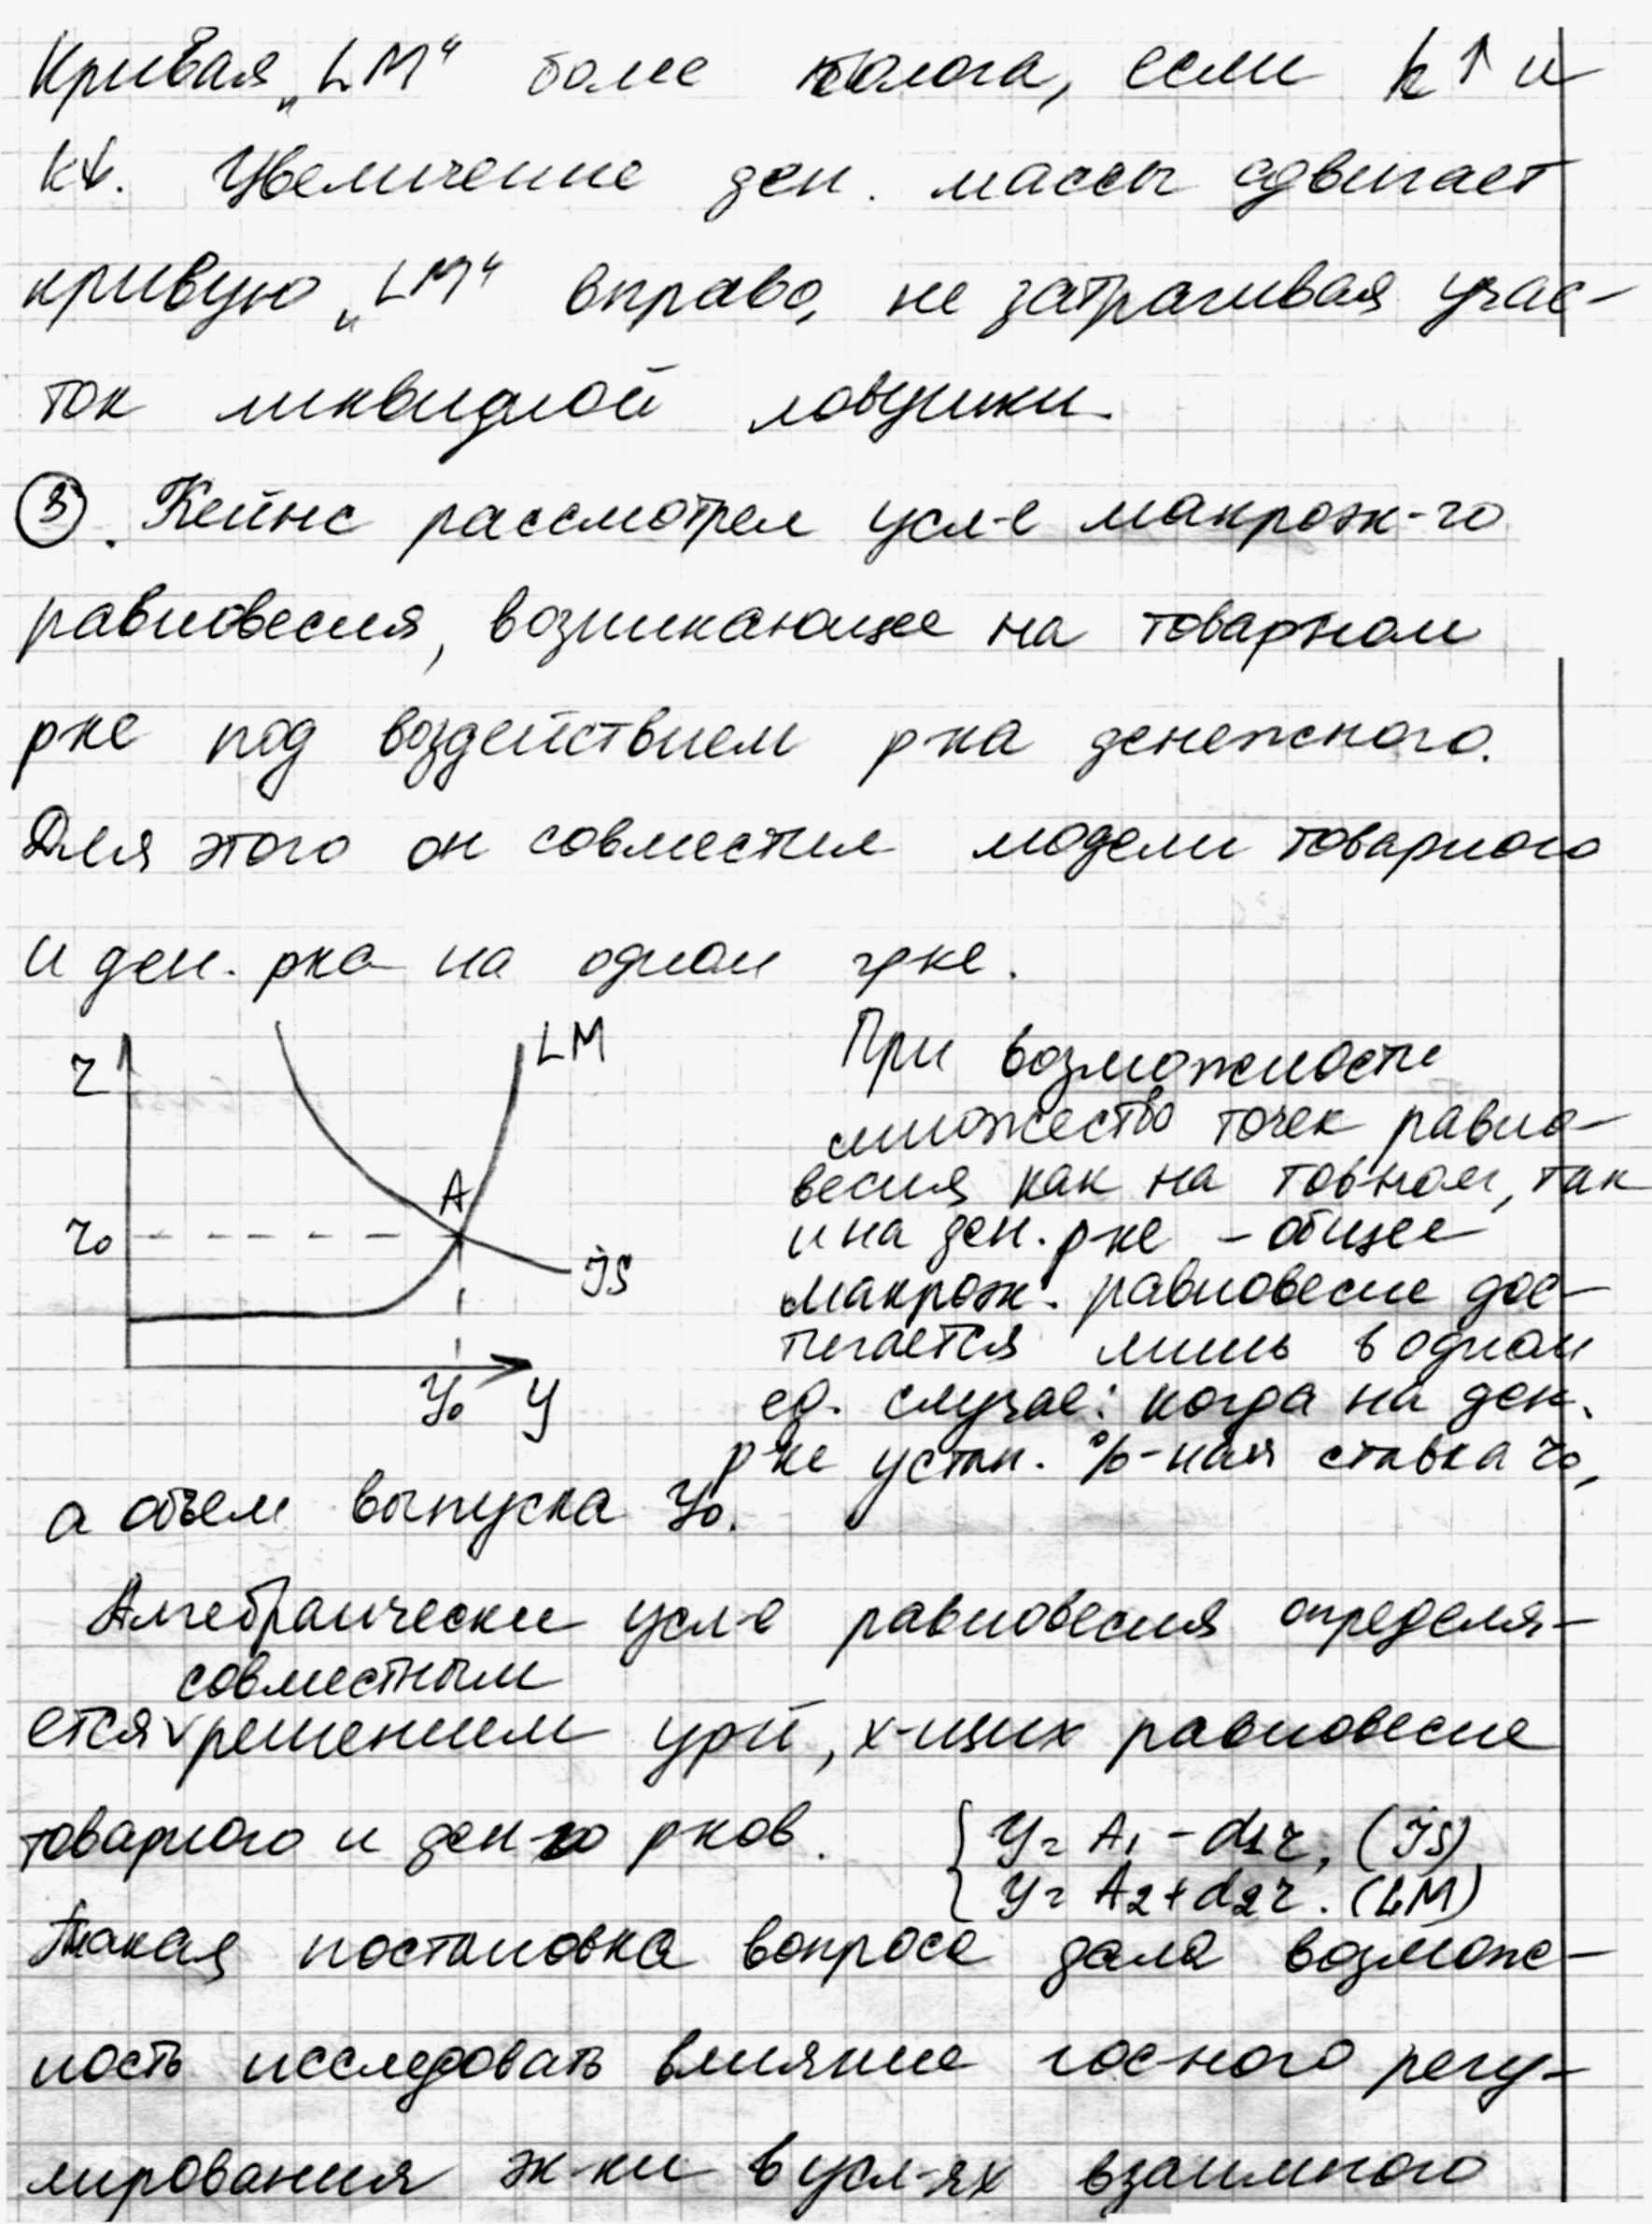 Кривая „LM“ более полога, если h↑ и
k↓. Увеличение ден. массы сдвигает
кривую „LM“ вправо, не затрагивая учас-
ток ликвидной ловушки.
3. Кейнс рассмотрел усл-е макроэк-го
равновесия, возникающее на товарном
рке под воздействием р-ка денежного.
Для этого он совместил модели товарного
и ден. рка на одном гр-ке.
LM
r
A
r₀
IS
Y₀ Y
При возможности
множество точек равно-
весия как на тов-ном, так
и на ден. р-ке – общее
макроэк. равновесие дос-
тигается лишь в одном
ед. случае: когда на ден.
р-ке устан. %-ная ставка r₀,
а объем выпуска Y₀.
Алгебраически усл-е равновесия определя-
совместным
ется ∨ решением ур-й, х-щих равновесие
товарного и ден-го рков.
{ Y = A₁ - d₁r, (IS)
Y = A₂ + d₂r. (LM)
Такая постановка вопроса дала возмож-
ность исследовать влияние гос-ного регу-
лирования эк-ки в усл-ях взаимного